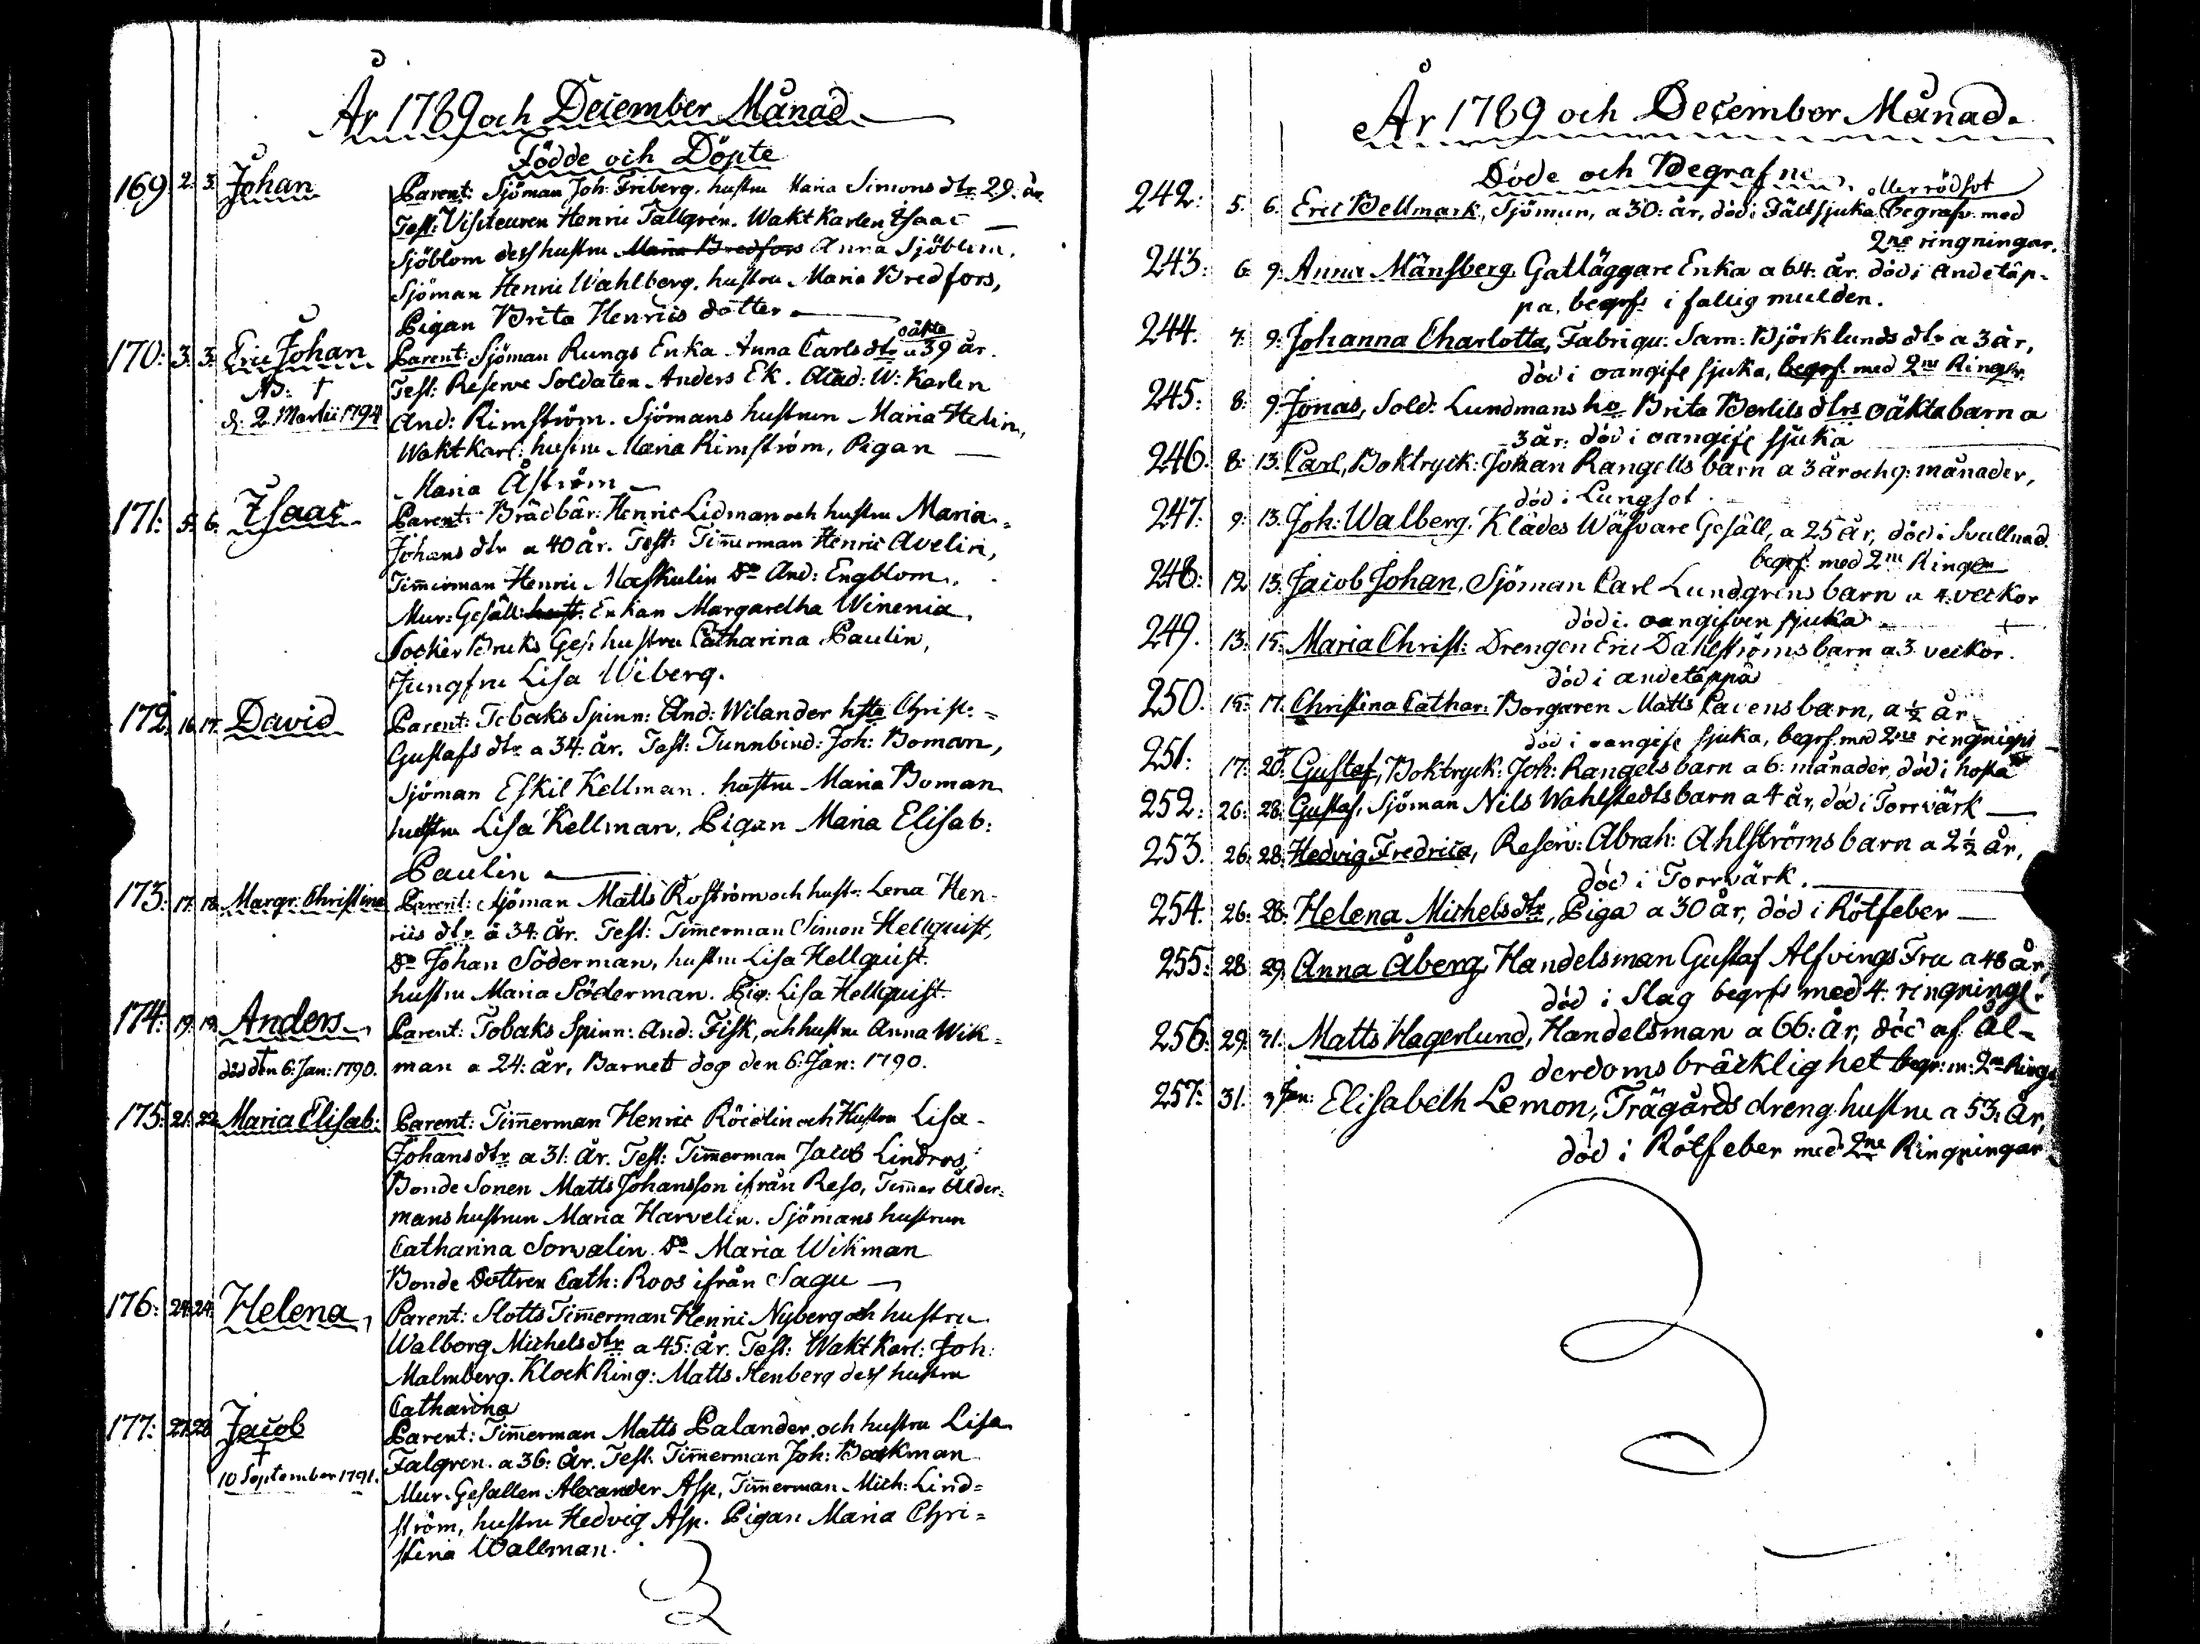 År 1789 och December Månad
Födde och Döpte
169: 2: 3: Johan Parent: Sjöman Joh: Friberg, hustru Maria Simons dtr 29: år
Test: Visiteuren Henric Tallgrén. Wakt Karlen Isaac
Sjöblom dess hustru Maria Bredfors Anna Sjöblom,
Sjöman Henric Wahlberg, hustru Maria Bredfors,
Pigan Brita Henrics dotter
oäkta
170: 3: 3: Eric Johan Parent: Sjöman Rungs Enka Anna Carls dtr a 39 år.
NB: † Test: Reserve Soldaten Anders Ek. Acad: W: Karlen
d: 2 Martii 1794 And: Rimström. Sjömans hustrun Maria Helin,
Wakt Karl: hustru Maria Rimström, Pigan
Maria Åström
171: 5: 6: Isaac Parent: Brädbär: Henric Lidman och hustru Maria
Johans dtr a 40 år. Test: Timerman Henric Avelin,
Timerman Henric Maskulin Do And: Engblom.
Mur: Gesäll: hust: Enkan Margaretha Winenia
Socker Bruks Ges: hustru Catharina Paulin,
Jungfru Lisa Wiberg.
172: 16. 17. David Parent: Tobaks Spinn: And: Wilander hstr Christ: =
Gustafs dtr a 34: år. Test: Tunnbind: Joh: Boman,
Sjöman Eskil Kellman. hustru Maria Boman
hustru Lisa Kellman, Pigan Maria Elisab:
Paulin
173: 17: 18. Margr: Christina Parent: Sjöman Matts Roström och hust: Lena Hen-
rics dtr a 34: år. Test: Timerman Simon Hellquist,
Do Johan Söderman, hustru Lisa Hellquist.
hustru Maria Söderman. Pig: Lisa Hellquist.
174: 19: 19: Anders Parent: Tobaks Spinn: And: Fisk, och hustru Anna Wik=
†
död den 6: Jan: 1790. man a 24: år, Barnet dog den 6: Jan: 1790.
175: 21: 22: Maria Elisab: Parent: Timerman Henric Röidlin och Hustru Lisa
Johans dtr a 31: år. Test: Timerman Jacob Lindros,
Bonde Sonen Matts Johansson ifrån Reso, Timer Ålder=
mans hustrun Maria Harvelin. Sjömans hustrun
Catharina Sorvalin. Do Maria Wikman
Bonde Dottren Cath: Roos ifrån Sagu
176: 24: 24: Helena, Parent: Slotts Timerman Henric Nyberg och hustru
Walborg Michels dtr a 45: år. Test: Wakt Karl: Joh:
Malmberg. Klock Ring: Matts Stenberg dess hustru
Catharina
177: 27: 28 Jacob Parent: Timerman Matts Palander och hustru Lisa
† Falgren. a 36: år. Test: Timerman Joh: Backman
10 September 1791. Mur: Gesällen Alexander Asp, Timerman Mich: Lind=
ström, hustru Hedvig Asp. Pigan Maria Chri=
stina Wallman.
År 1789 och December Månad.
Döde och Begrafne
eller rödsot
242: 5: 6: Eric Bellmark, Sjöman, a 30: år, död i Fältsjuka begrafv: med
2ne ringningar.
243: 6: 9: Anna Månsberg, Gatläggare Enka a 64: år. död i andetäp-
pa, begrfs i fallig mulden.
244. 7: 9: Johanna Charlotta, Fabriqu: Sam: Björklunds dtr a 3 år,
död i oangife sjuka, begrf: med 2ne Ringgr.
245: 8: 9: Jonas, Sold: Lundmans ho Brita Bertils dtrs oäkta barn a
3 år: död i oangife sjuka
246. 8: 13: Carl, Boktryck: Johan Rangells barn a 3 år och 9: månader,
död i Lungsot.
247: 9: 13. Joh: Walberg. Klädes Wäfvare Gesäll, a 25 år, död i Svullnad.
begrf: med 2ne Ringgr
248: 12 13: Jacob Johan, Sjöman Carl Lundgrens barn a 4: veckor
död i oangifven sjuka
249. 13: 15: Maria Christ: Drengen Eric Dahlströms barn a 3 veckor.
död i andetäppa
250. 15: 17. Christina Cathar: Borgaren Matts Pacens barn, a ½ år
död i oangife sjuka, begrf. med 2ne ringnigr
251: 17: 20: Gustaf, Boktryck: Joh: Rangels barn a 6: månader, död i hosta
252: 26: 28: Gustaf, Sjöman Nils Wahlstedts barn a 4 år, död i Torrvärk
253. 26: 28. Hedvig Fredrica, Reserv: Abrah: Ahlströms barn a 2½ år,
död i Torrvärk.
254. 26: 28: Helena Michels dtr, Piga a 30 år, död i Rötfeber
255: 28 29 Anna Åberg, Handelsman Gustaf Alfvings Fru a 48 år,
död i Slag begrfs med 4: ringninge:
256: 29: 31: Matts Hagerlund, Handelsman a 66: år, död af ål-
derdoms bräcklighet begr: m: 2ne Ringr
257: 31: 3 Jan: Elisabeth Lemon, Trägårds dreng hustru a 53: år,
död i Rötfeber med 2ne Ringningar